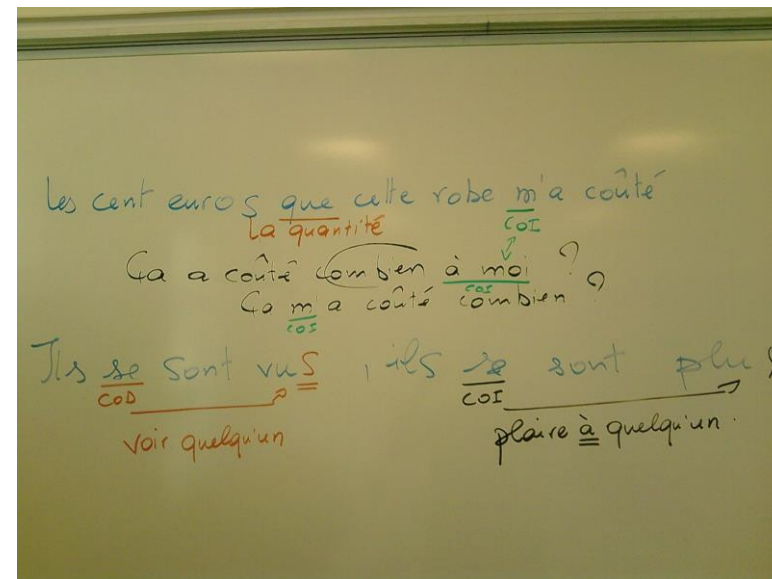 Les cent euros que cette robe m'a coûté
la quantité COI
Ça a coûté combien à moi ?
COI
Ça m'a coûté combien ?
COI
Ils se sont vus, ils se sont plu
COD COI
voir quelqu'un plaire à quelqu'un.